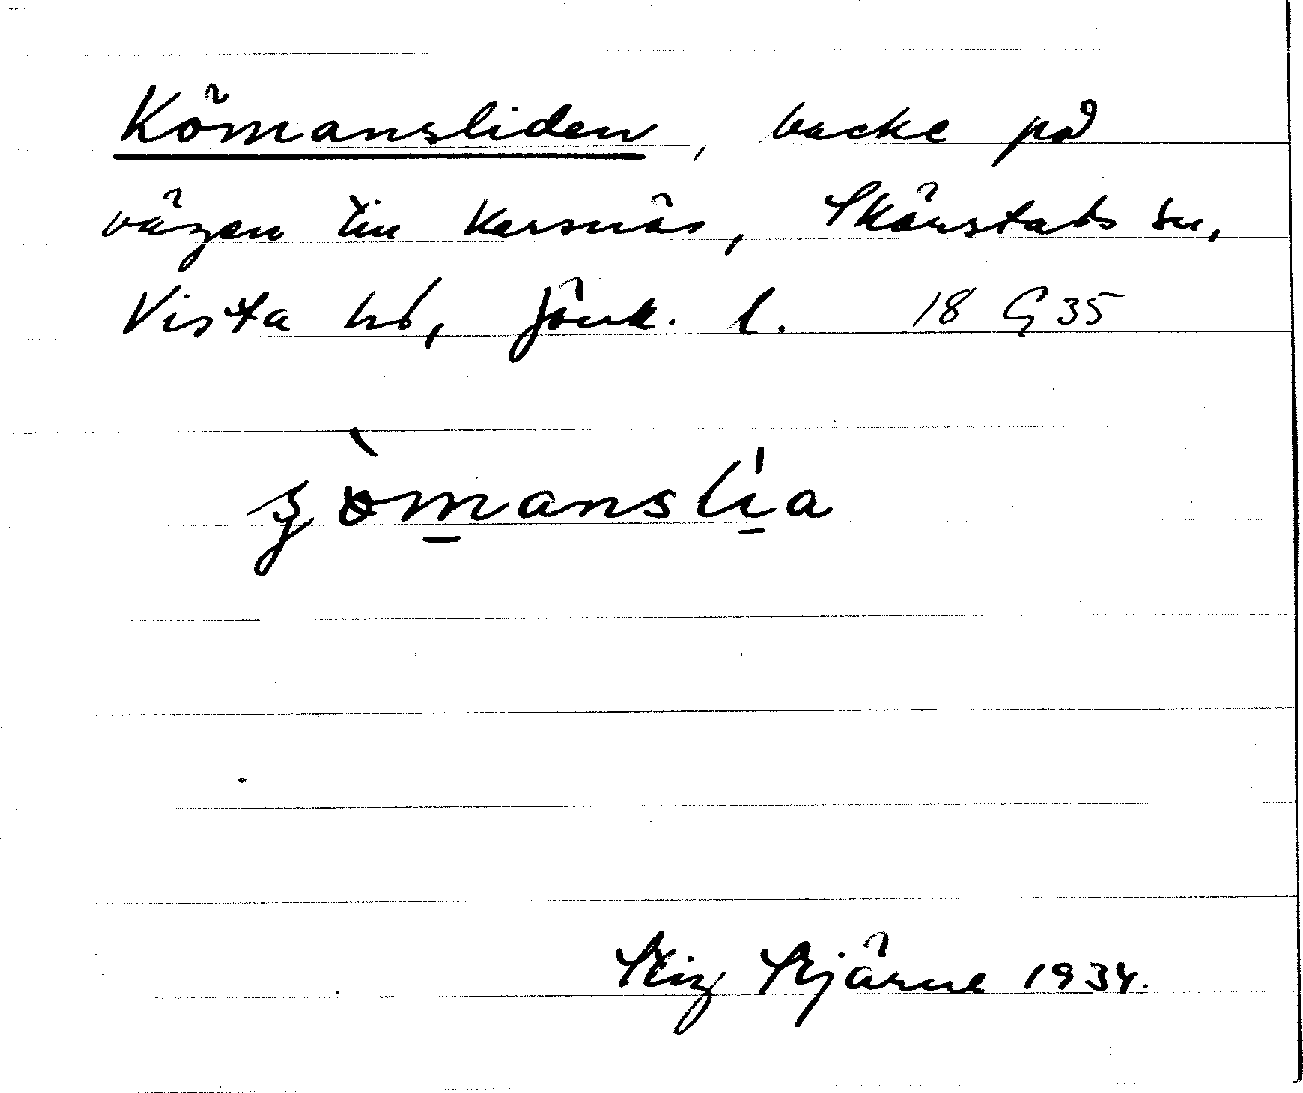 Kömansliden, backe på
vägen till Kersnäs, Skärstads sn,
Vista hd, Jönk. l. 18 G 35
ȿömanslia
Stig Stjärne 1934.